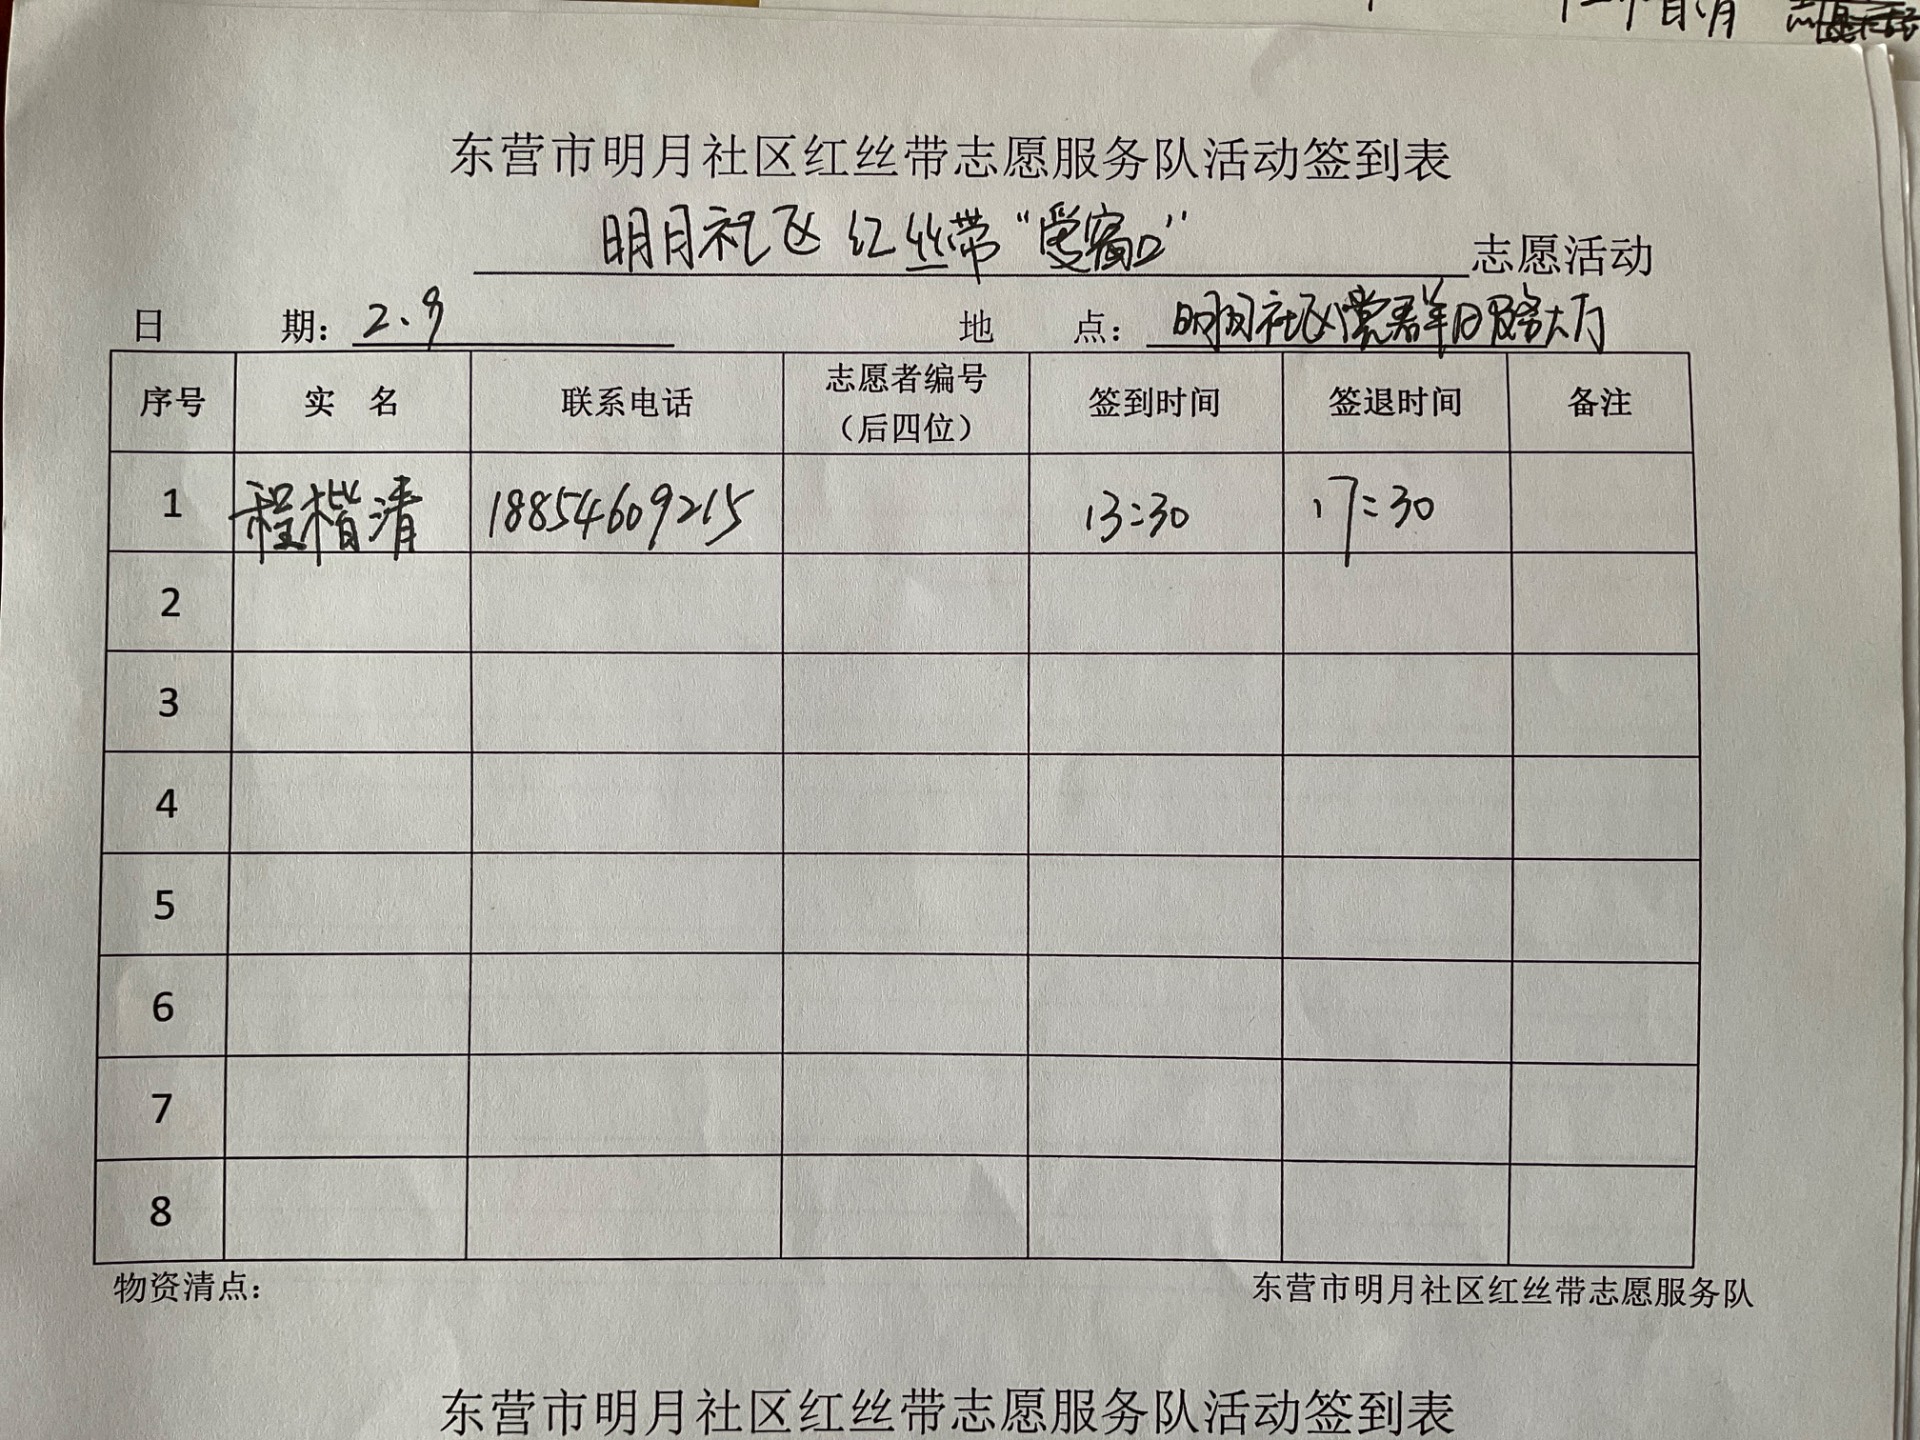 东营市明月社区红丝带志愿服务队活动签到表
明月社区红丝带“爱窗口”志愿活动
日 期：2.9 地 点：明月社区党群服务大厅
序号 实 名 联系电话 志愿者编号（后四位） 签到时间 签退时间 备注
1 程楷清 18854609215 13:30 17:30
2
3
4
5
6
7
8
物资清点： 东营市明月社区红丝带志愿服务队
东营市明月社区红丝带志愿服务队活动签到表